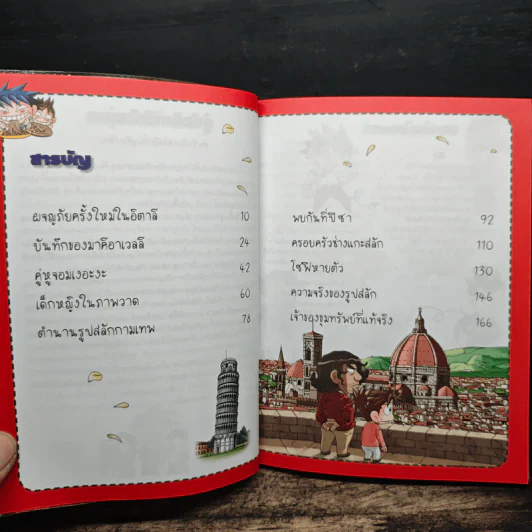 สารบัญ
ผจญภัยครั้งใหม่ในอิตาลี 10
บันทึกของมาคิอาเวลลี 24
คู่หูจอมเงอะงะ 42
เด็กหญิงในภาพวาด 60
ตำนานรูปสลักกามเทพ 78
พบกันที่ปิซา 92
ครอบครัวช่างแกะสลัก 110
โซฟีหายตัว 130
ความจริงของรูปสลัก 146
เจ้าของขุมทรัพย์ที่แท้จริง 166